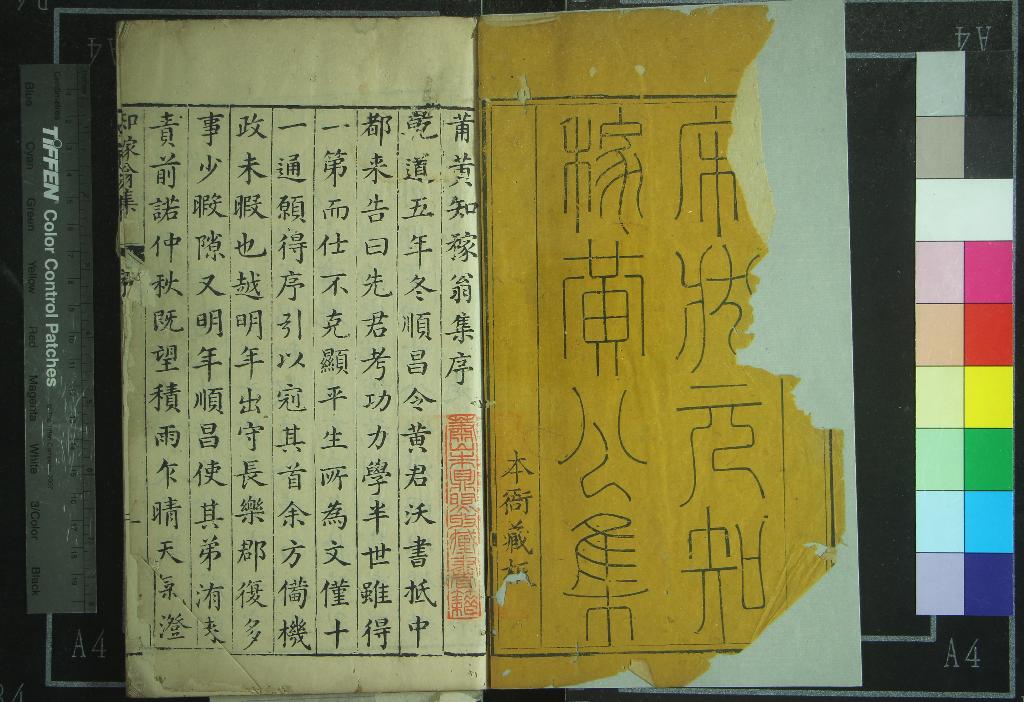 宋狀元知
稼黃公集
本衙藏板
莆黃知稼翁集序
乾道五年冬順昌令黃君沃書抵中
都来告曰先君考功力學半世雖得
一第而仕不克顯平生所為文僅十
一通願得序引以冠其首余方備機
政未暇也越明年出守長樂郡復多
事少暇隙又明年順昌使其弟洧来
責前諾仲秋既望積雨乍晴天氣澄
知稼翁集
序
一
蕭山朱鼎煦收藏書籍
TIFFEN Color Control Patches
Blue Cyan Green Yellow Red Magenta White 3/Color Black
A4
A4
A4
A4